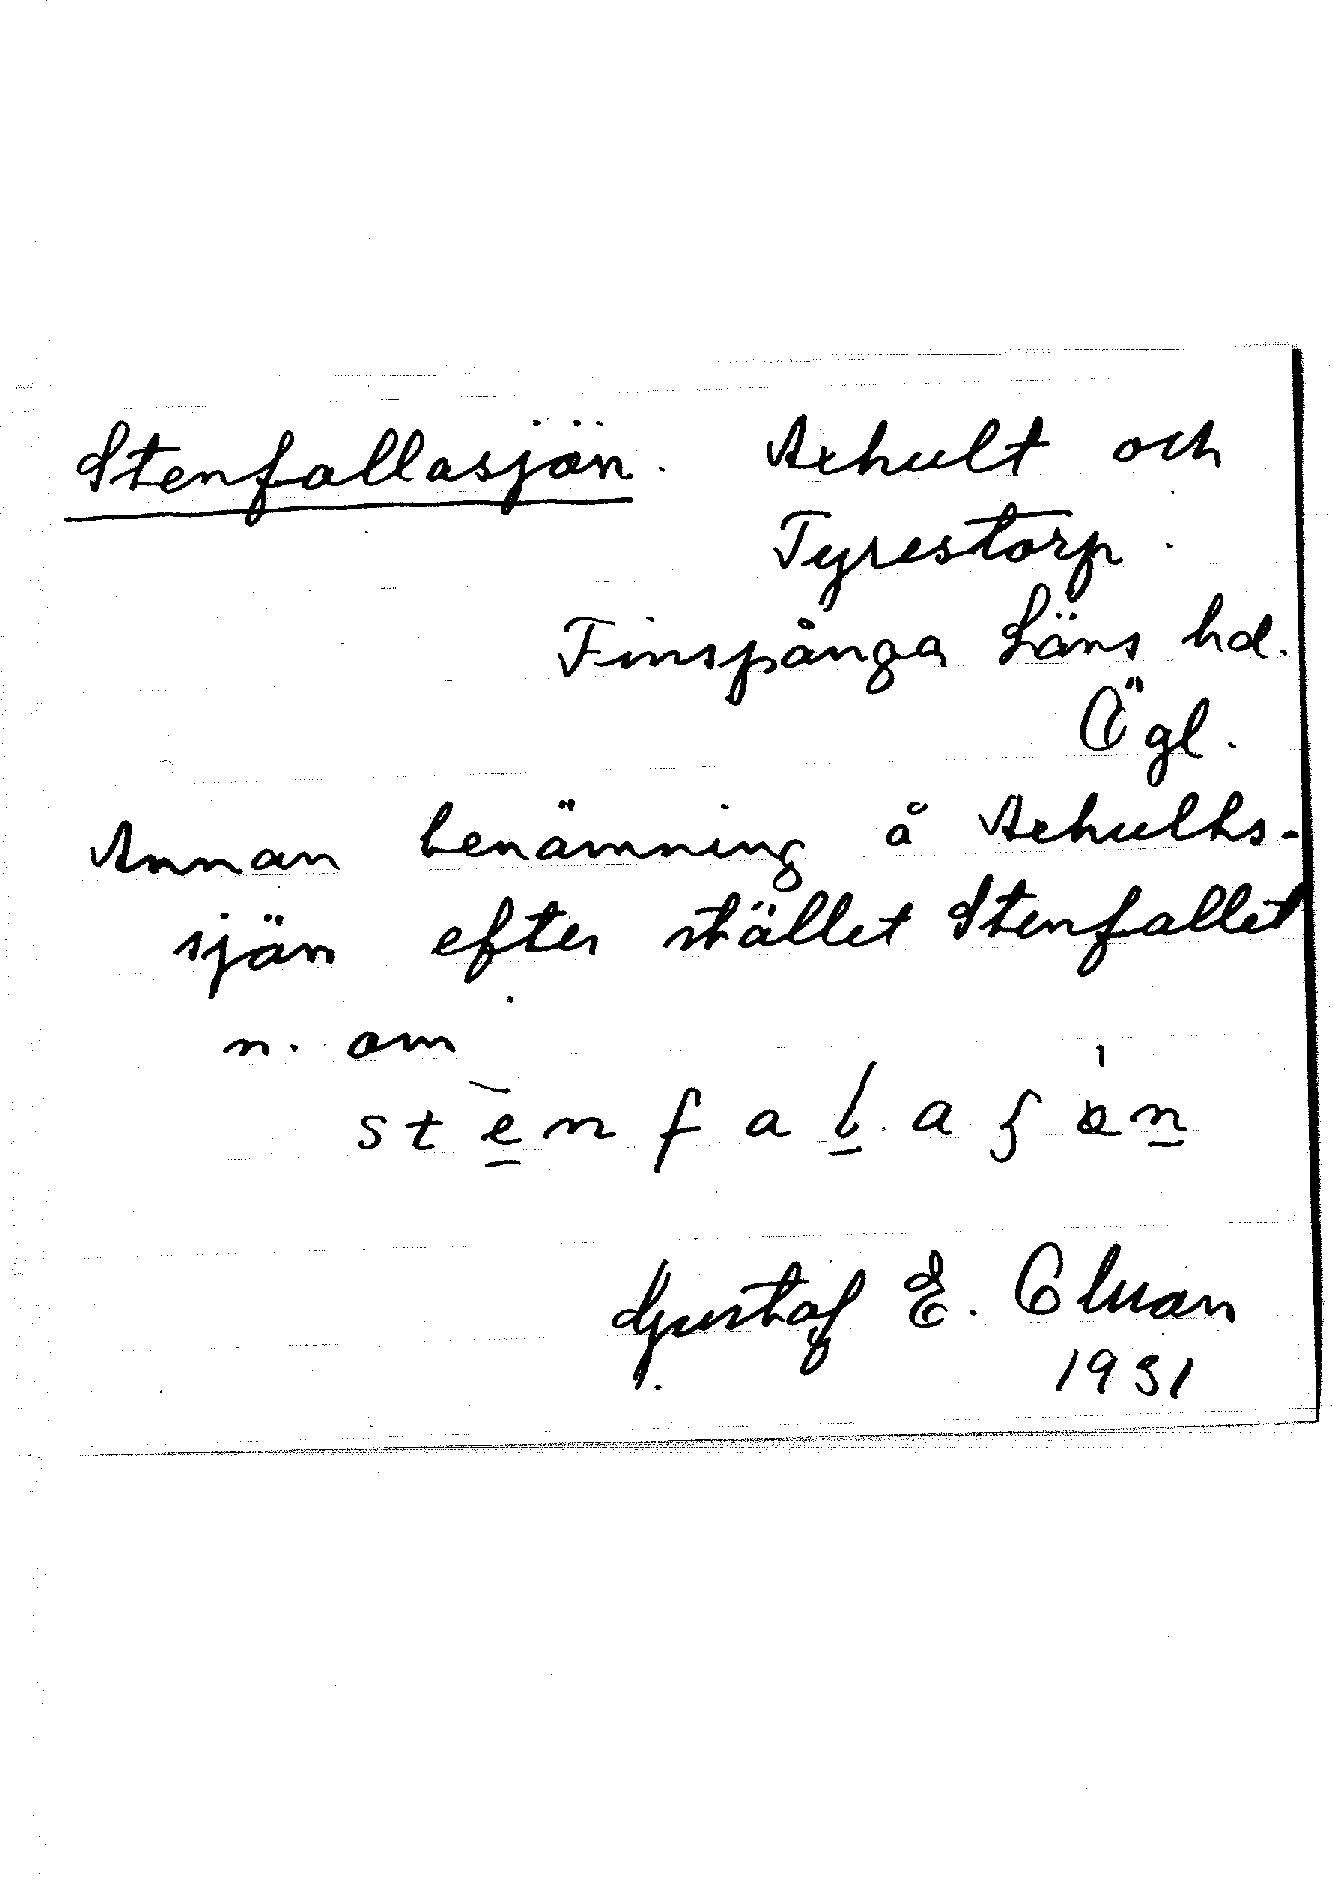 Stenfallasjön. Axhult och
Tyrestorp.
Finspånga Läns hd.
Ögl.
Annan benämning å Axhults-
sjön efter stället Stenfallet
n. om
Gustaf E.
1931